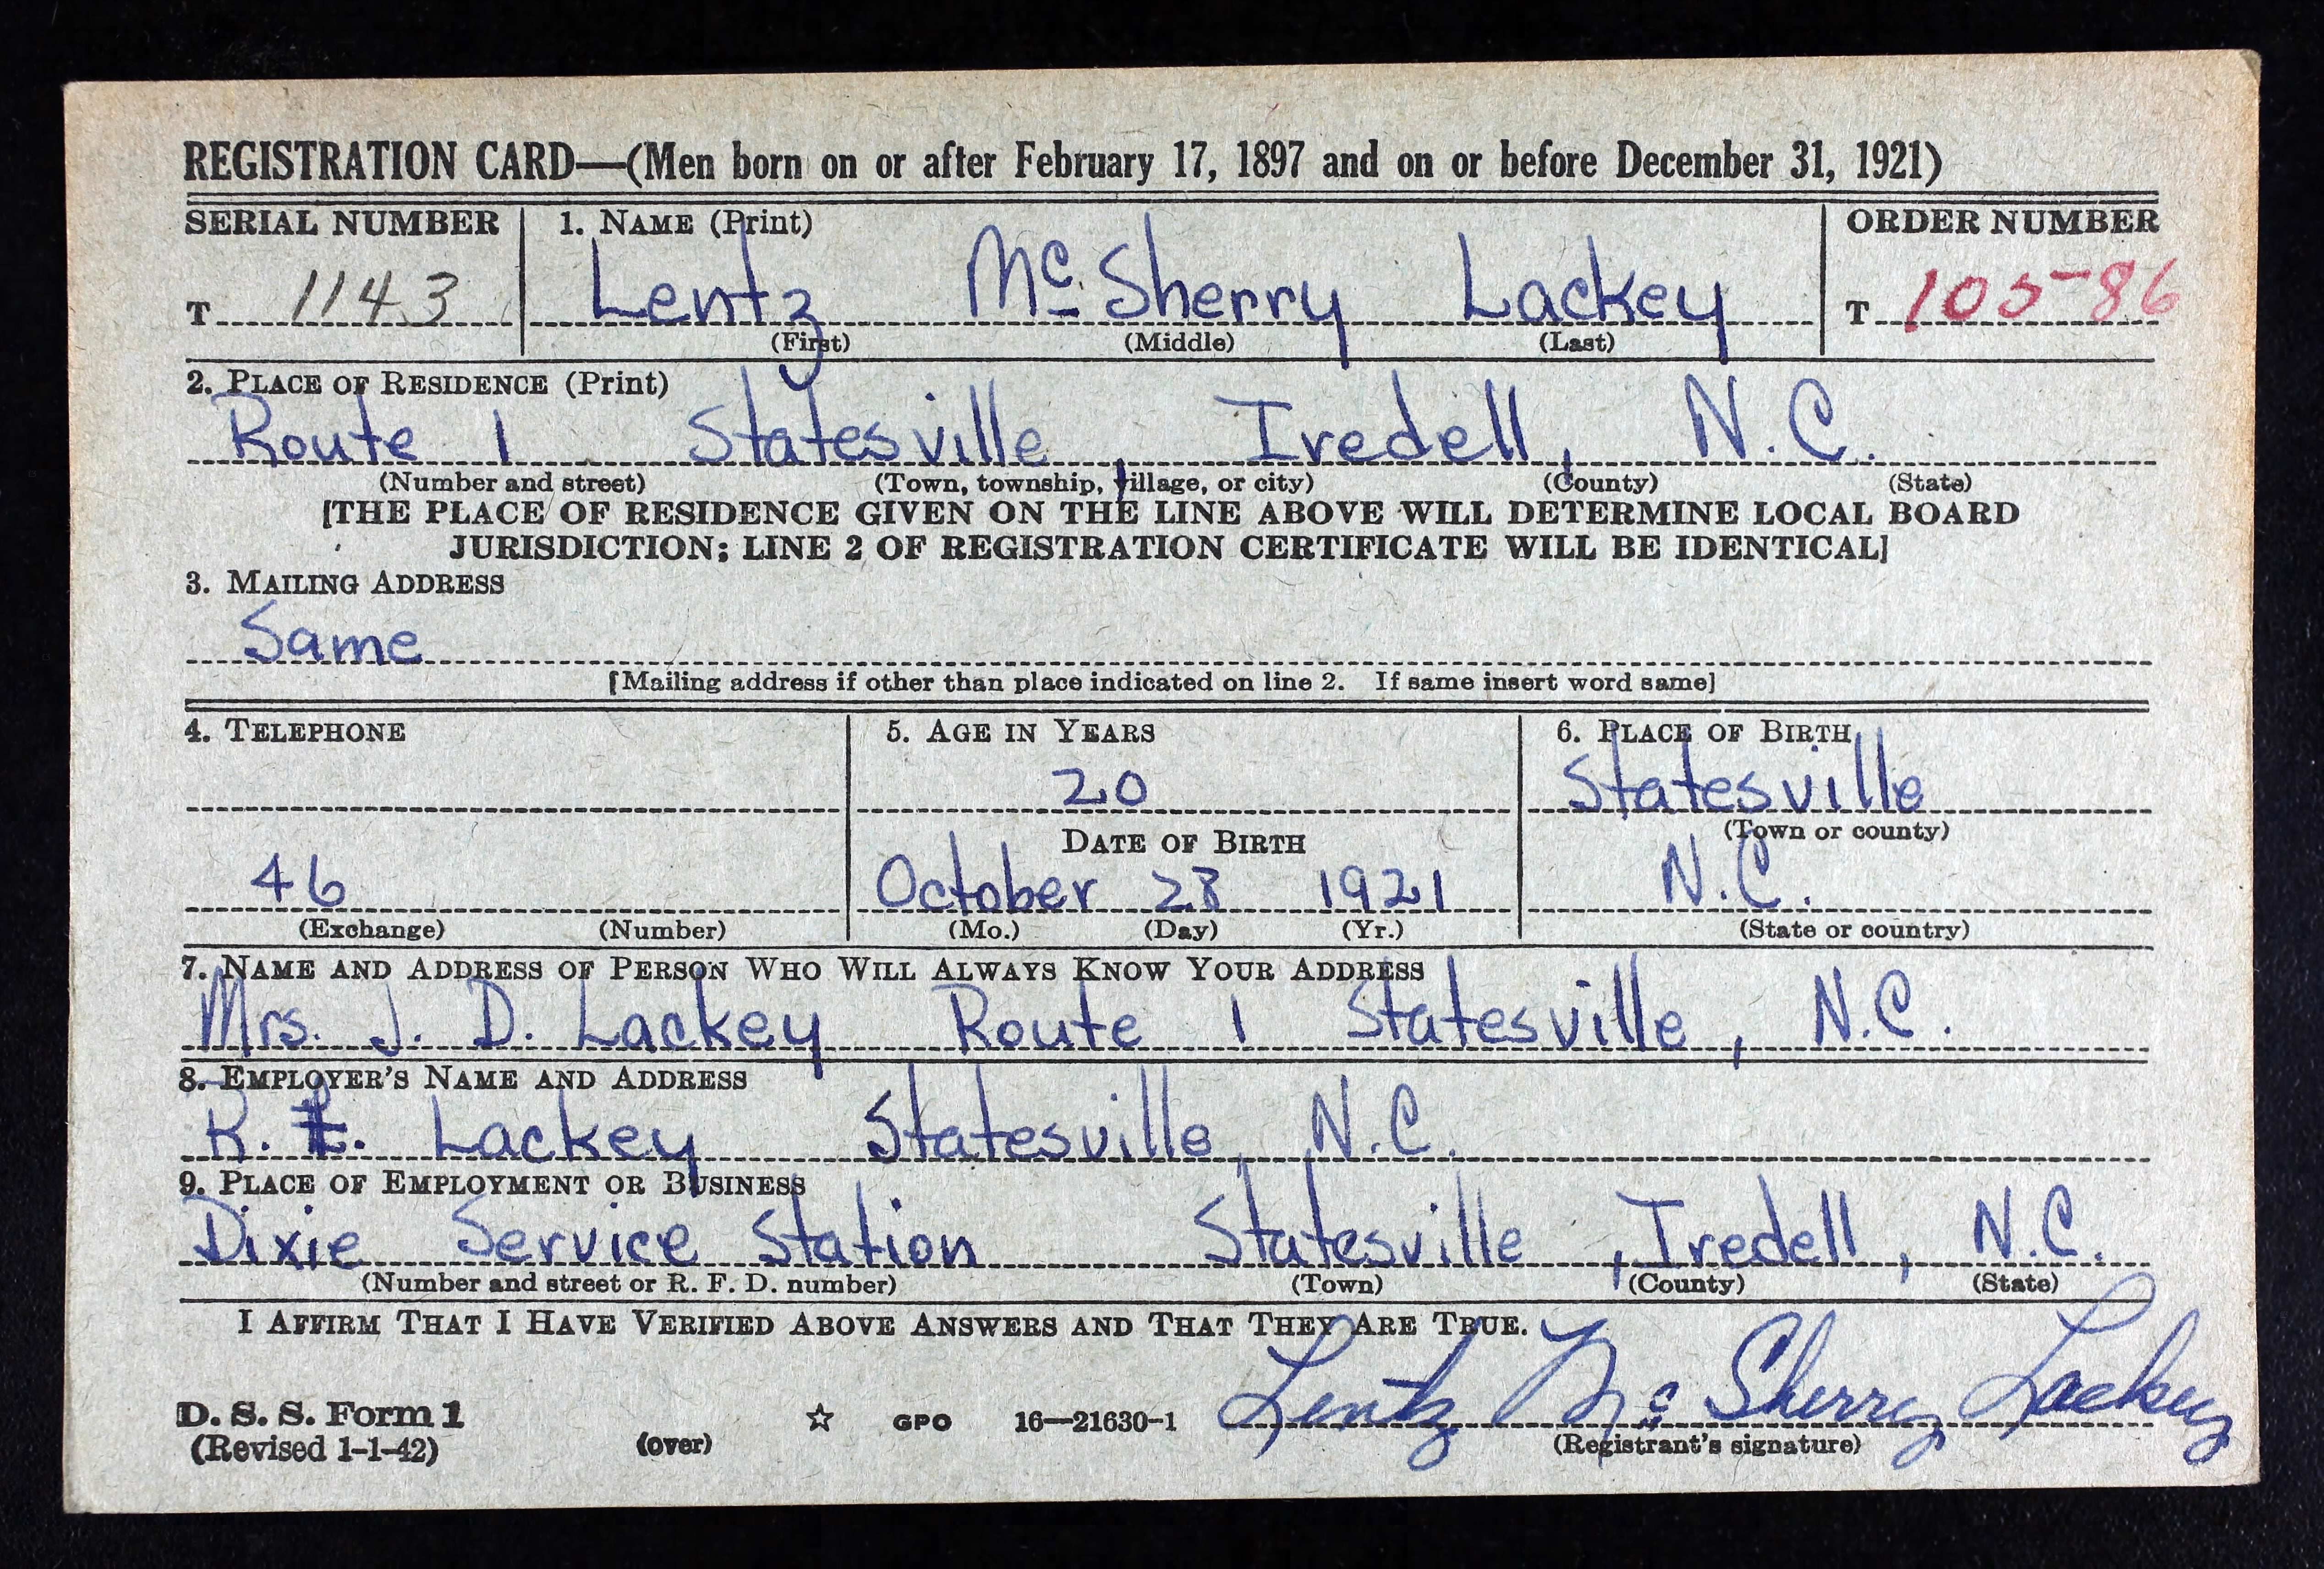 REGISTRATION CARD—(Men born on or after February 17, 1897 and on or before December 31, 1921)
SERIAL NUMBER 1. NAME (Print) ORDER NUMBER
T 1143 Lentz Mc Sherry Lackey T 10586
(First) (Middle) (Last)
2. PLACE OF RESIDENCE (Print)
Route 1 Statesville, Iredell, N.C.
(Number and street) (Town, township, village, or city) (County) (State)
[THE PLACE OF RESIDENCE GIVEN ON THE LINE ABOVE WILL DETERMINE LOCAL BOARD
JURISDICTION; LINE 2 OF REGISTRATION CERTIFICATE WILL BE IDENTICAL]
3. MAILING ADDRESS
Same
[Mailing address if other than place indicated on line 2. If same insert word same]
4. TELEPHONE 5. AGE IN YEARS 6. PLACE OF BIRTH
20 Statesville
DATE OF BIRTH (Town or county)
46 October 28 1921 N.C.
(Exchange) (Number) (Mo.) (Day) (Yr.) (State or country)
7. NAME AND ADDRESS OF PERSON WHO WILL ALWAYS KNOW YOUR ADDRESS
Mrs. J. D. Lackey Route 1 Statesville, N.C.
8. EMPLOYER'S NAME AND ADDRESS
R. Lackey Statesville, N.C.
9. PLACE OF EMPLOYMENT OR BUSINESS
Dixie Service Station Statesville, Iredell, N.C.
(Number and street or R. F. D. number) (Town) (County) (State)
I AFFIRM THAT I HAVE VERIFIED ABOVE ANSWERS AND THAT THEY ARE TRUE.
Lentz Mc Sherry Lackey
D. S. S. Form 1
(Revised 1-1-42) (over) ☆ GPO 16—21630-1 (Registrant's signature)